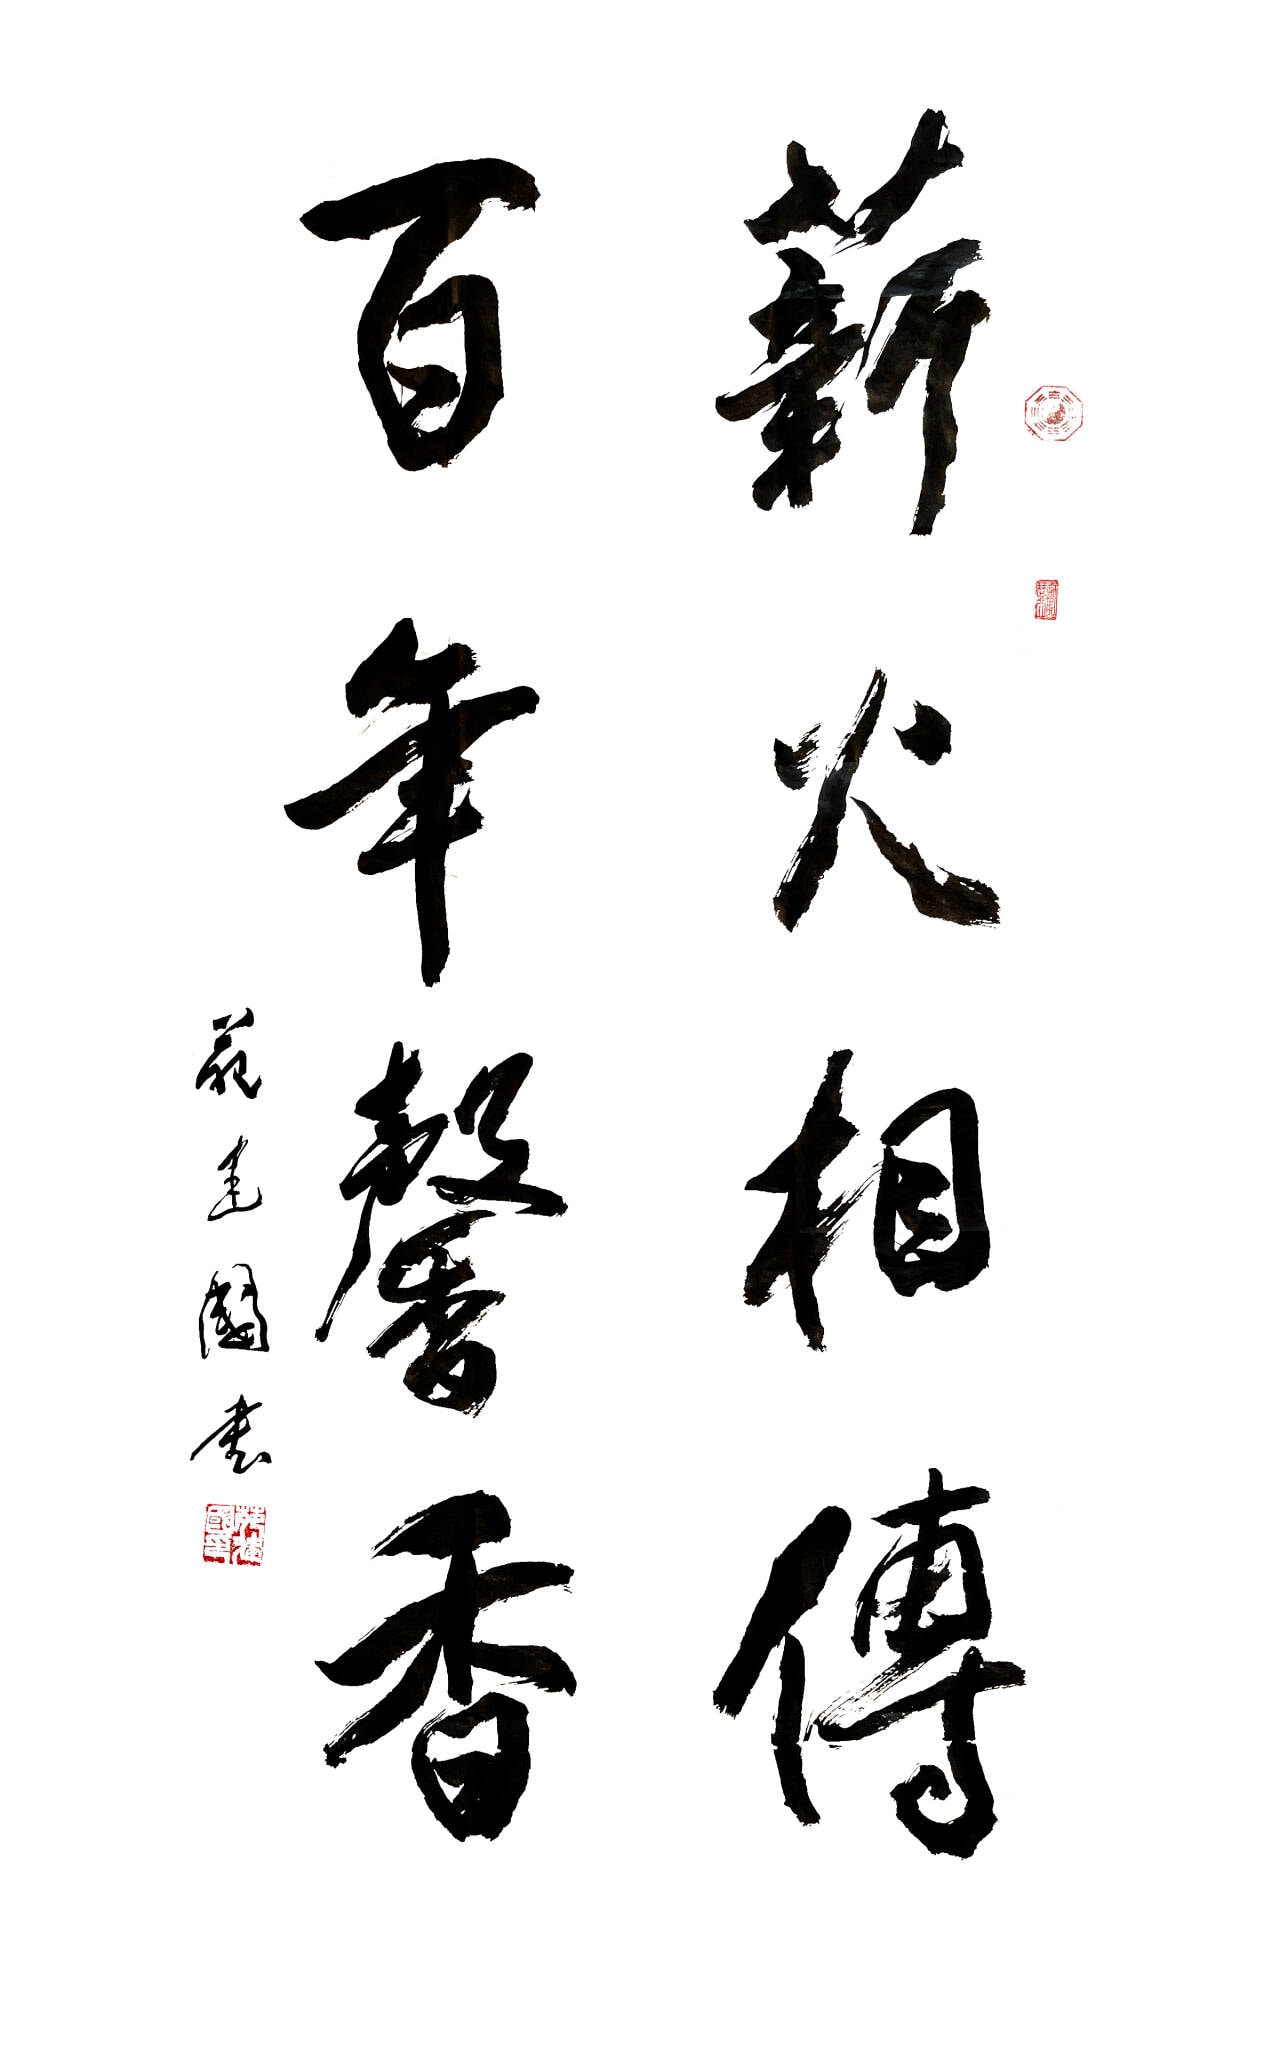 薪火相傳
百年馨香
苑建國書